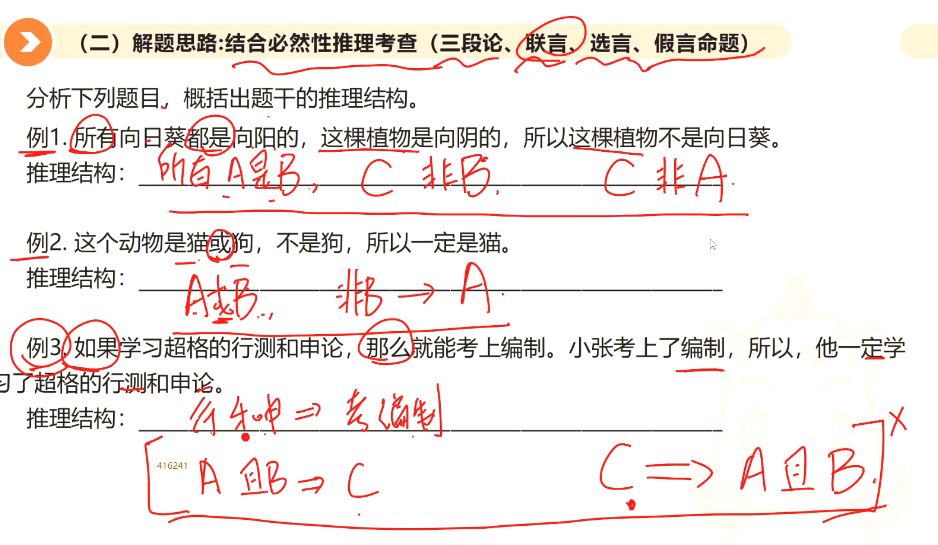 （二）解题思路:结合必然性推理考查（三段论、联言、选言、假言命题）
分析下列题目，概括出题干的推理结构。
例1. 所有向日葵都是向阳的，这棵植物是向阴的，所以这棵植物不是向日葵。
推理结构： 所有A是B， C 非B. C 非A.
例2. 这个动物是猫或狗，不是狗，所以一定是猫。
推理结构： A或B， 非B → A.
例3. 如果学习超格的行测和申论，那么就能考上编制。小张考上了编制，所以，他一定学
习了超格的行测和申论。
推理结构： 行和申 ⇒ 考编制
416241 A且B ⇒ C C ⇒ A且B. X